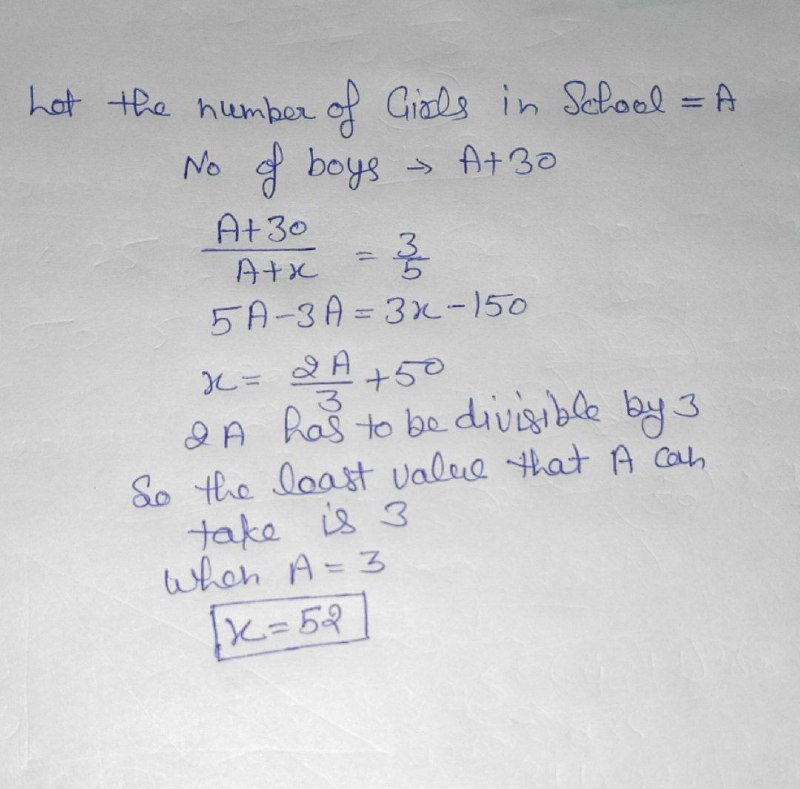 Let the number of Girls in School = A
No of boys → A+30
A+30/A+x = 3/5
5A-3A = 3x-150
x = 2A/3 +50
2A has to be divisible by 3
So the least value that A can
take is 3
when A = 3
x = 52